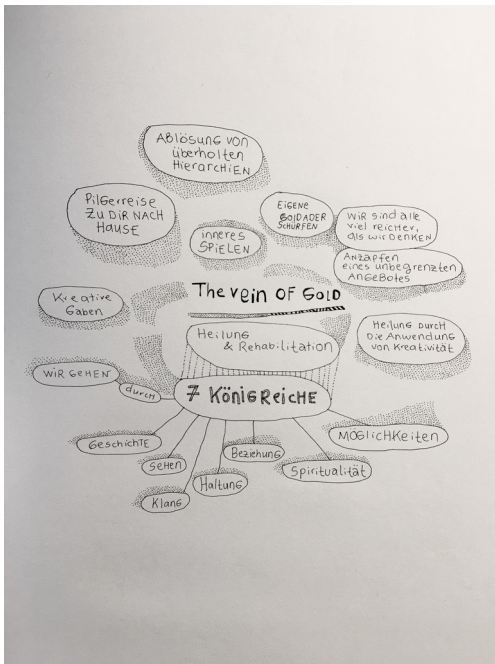 Ablösung von
überholten
Hierarchien
Pilgerreise
zu dir nach
Hause
inneres
Spielen
Eigene
Goldader
schürfen
Wir sind alle
viel reicher,
als wir denken
Anzapfen
eines unbegrenzten
Angebotes
Kreative
Gaben
The vein of Gold
Heilung
& Rehabilitation
Heilung durch
die Anwendung
von Kreativität
Wir gehen
durch
7 Königreiche
Geschichte
Sehen
Klang
Haltung
Beziehung
Spiritualität
Möglichkeiten